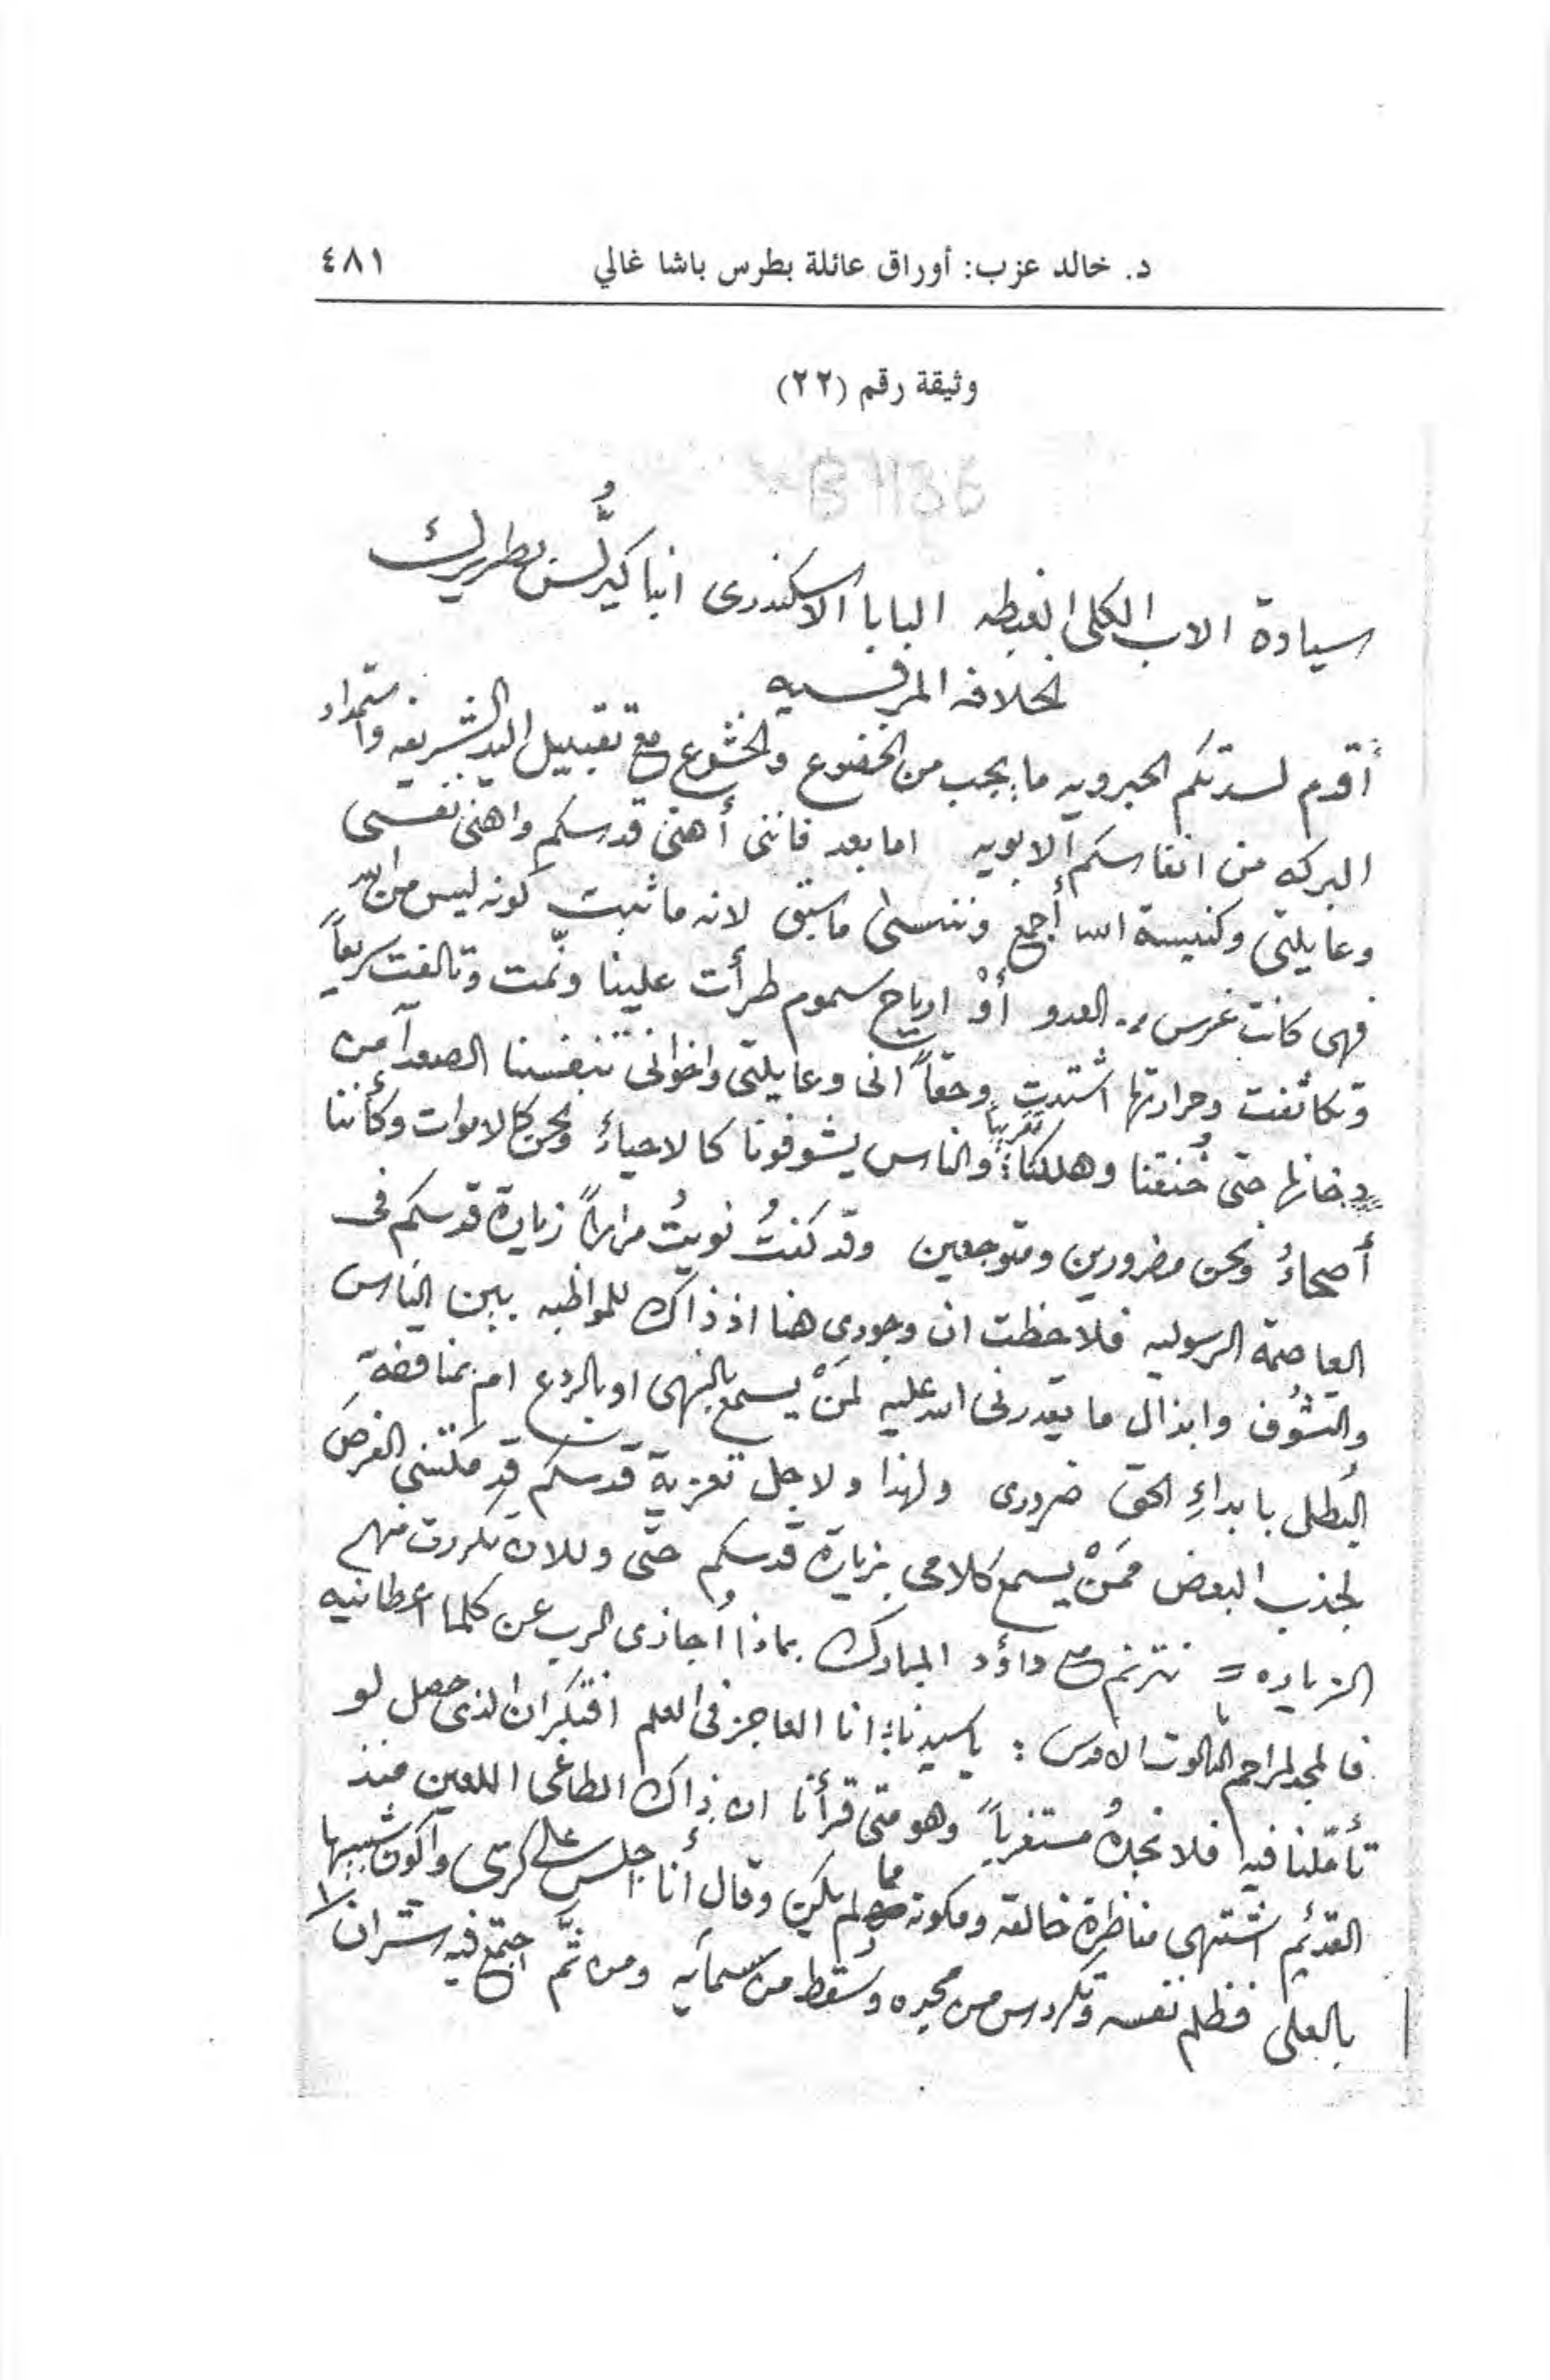 د. خالد عزب: أوراق عائلة بطرس باشا غالي ٤٨١
وثيقة رقم (٢٢)
B 7136
سيادة الاب الكلى الغبطه البابا الاسكندرى انبا كيرلُّس بطريرك
الخلافه المرقسيه
أقدم لسدتكم الحبرويه ما يجب من الخضوع والخشوع مع تقبيل اليد الشريفه واستمداد
البركه من انفاسكم الابويه اما بعد فاننى أهنى قدسكم واهنى نفسى
وعايلتى وكنيسة الله أجمع وننسى ما سبق لانه ما ثبت كونه ليس من الله
فهى كانت غرس العدو أوْ ارياح سموم طرأت علينا ونمّت وتالفت سريعاً
وتكاثفت وحرارتها اشتدت وحقاً انى وعايلتى واخوانى تنفسنا الصعدآ من
دخانها حتى خُنقنا وهلكنا تقريباً والناس يشوفونا كالاحياء ونحن كالاموات وكأننا
أصحاءُ ونحن مضرورين ومتوجعين وقد كنتُ نويتُ مراراً زيارة قدسكم فى
العاصمة الرسوليه فلاحظت ان وجودى هنا اذ ذاك للمواظبه بين الناس
والتشوُف وابذال ما يقدرنى الله عليه لمَنْ يسمع بالنهى او بالردع ام بمناقضة
البُطل بابداءِ الحق ضرورى ولهذا ولاجل تعزية قدسكم قد مكنتنى الفرصَ
لجذب البعض ممَنْ يسمع كلامى بزيارة قدسكم حتى وللان تكررت منهم
الزياره = نترنم مع داؤد المبارك بماذا أُجازى الرب عن كلما اعطانيه
فالمجد لمراحم الثالوث الاقدس : ياسيدنا انا العاجز فى العلم افتكر ان الذى حصل لو
تأمّلنا فيه فلا نجدهُ مستغرباً وهو متى قرأنا ان ذاك الطاغى اللعين منذ
القديم اشتهى مناظرة خالقه ومكونه مما لم يكن وقال أنا أجلس على كرسى وآكون شبيها
بالعلى فظلم نفسه وتكردس من مجده وسُقط من سمآيه ومن ثَمّ اجتمع فيه شران